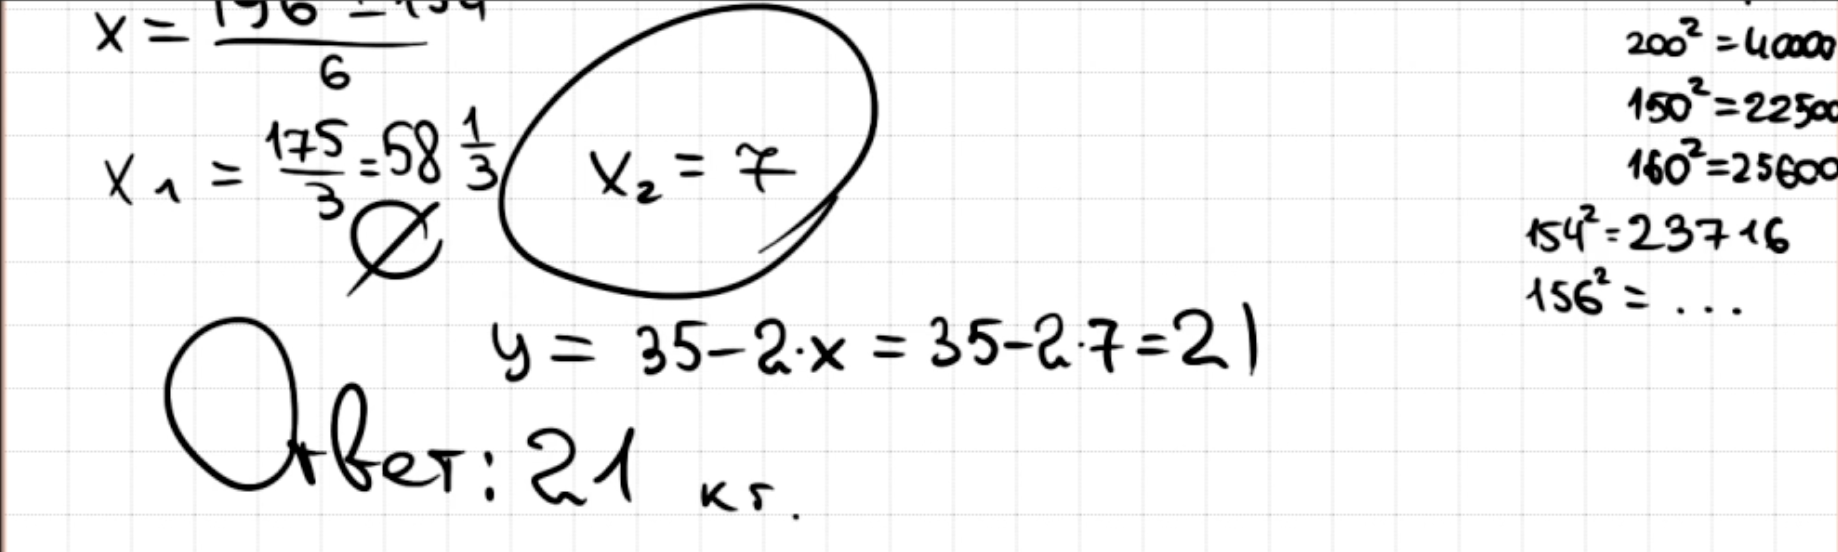 x = (196 ± 154)/6
x₁ = 175/3 = 58 1/3 ∅ x₂ = 7
y = 35 - 2·x = 35 - 2·7 = 21
Ответ: 21 кг.
200² = 40000
150² = 22500
160² = 25600
154² = 23716
156² = ...